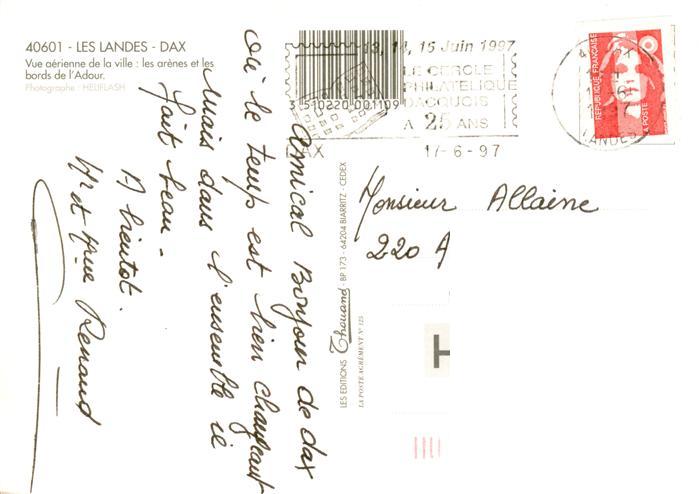 40601 - LES LANDES - DAX
Vue aérienne de la ville : les arènes et les
bords de l'Adour.
Photographe : HELIFLASH
Amical Bonjour de dax
où le temps est bien changeant
mais dans l'ensemble il
fait beau -
A bientot.
Mr et Mme Renaud
3 510220 001109
13, 14, 15 Juin 1997
LE CERCLE
PHILATELIQUE
DACQUOIS
A 25 ANS
DAX
17-6-97
LANDES
REPUBLIQUE FRANÇAISE
LA POSTE
Monsieur Allaine
220 A
LES EDITIONS Thouand - BP 173 - 64204 BIARRITZ - CEDEX
LA POSTE AGRÉMENT N° 125
T